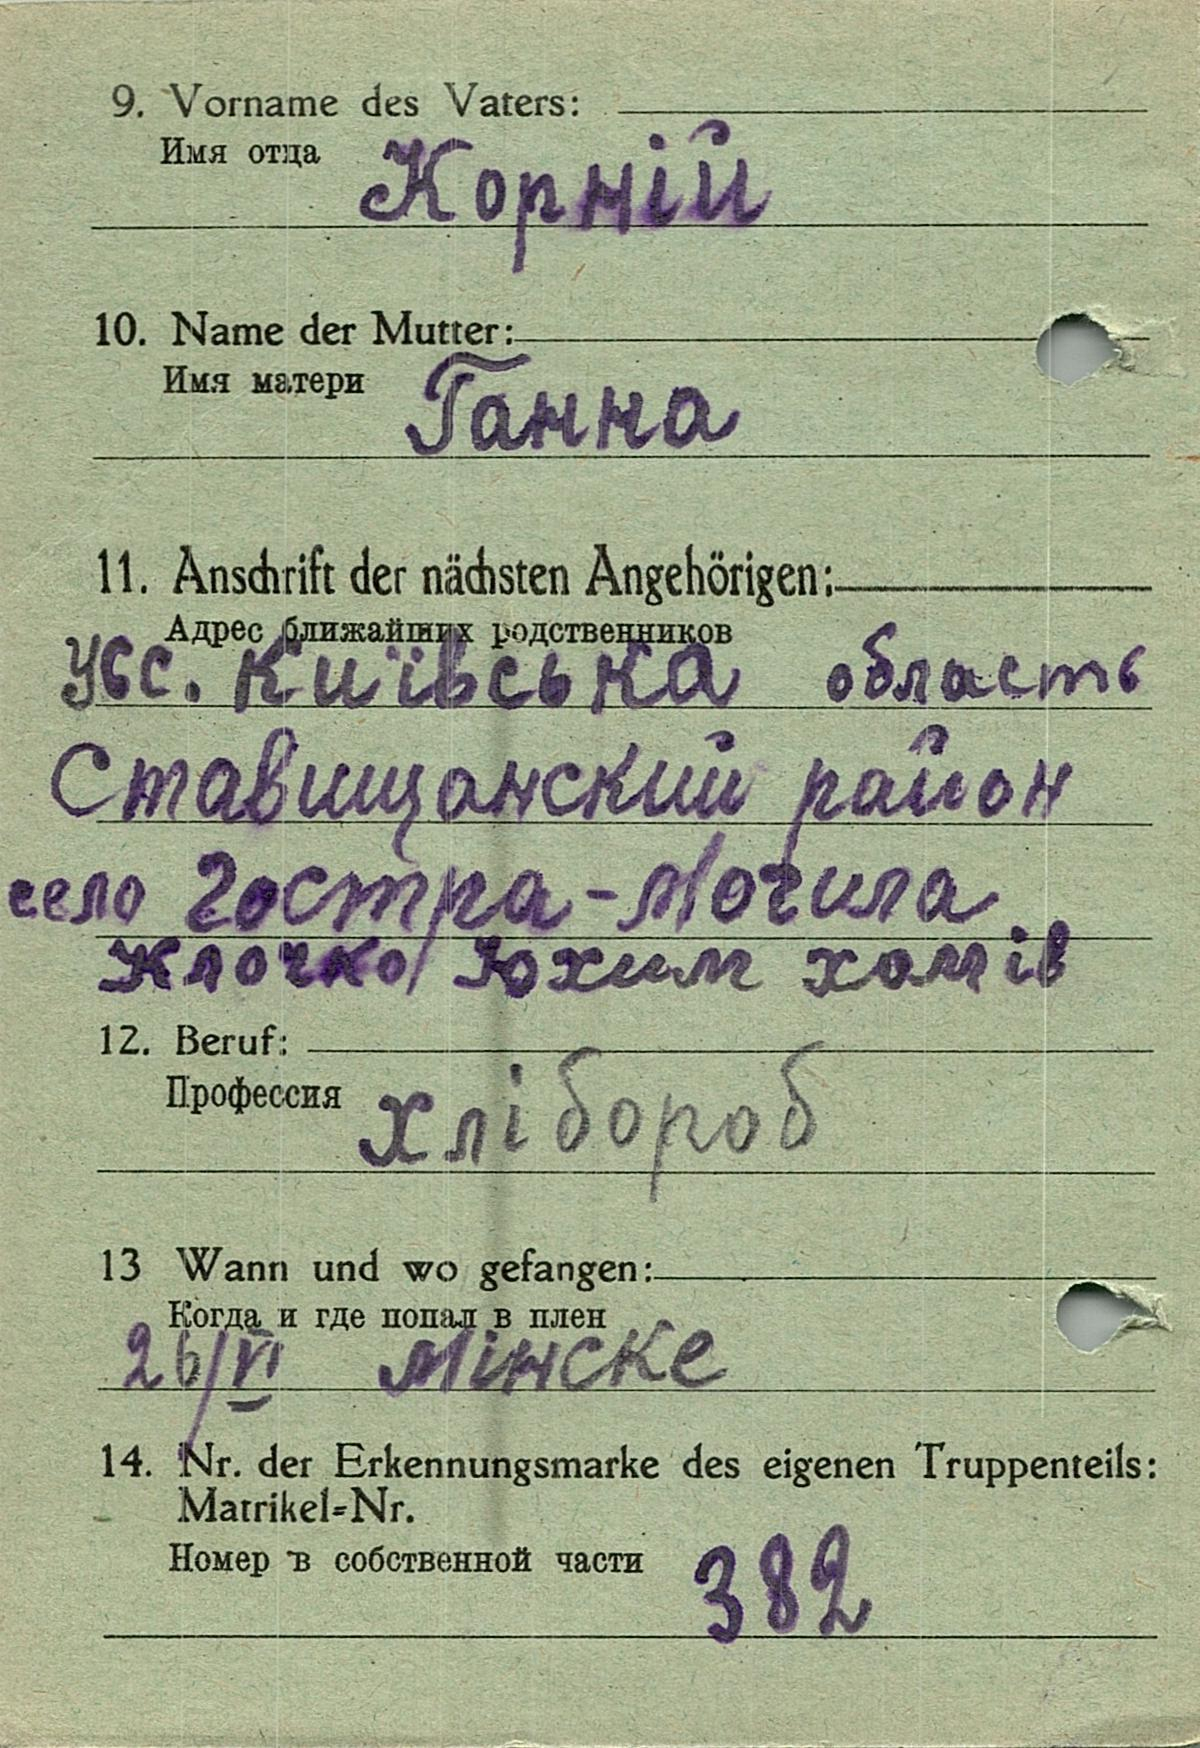 9. Vorname des Vaters:
Имя отца
Корній
10. Name der Mutter:
Имя матери
Ганна
11. Anschrift der nächsten Angehörigen:
Адрес ближайших родственников
Усс. Київська область
Ставищанский район
село Гостра-Могила
Клочко Юхим хомів
12. Beruf:
Профессия
хлібороб
13 Wann und wo gefangen:
Когда и где попал в плен
26/VI Мінске
14. Nr. der Erkennungsmarke des eigenen Truppenteils:
Matrikel=Nr.
Номер в собственной части
382